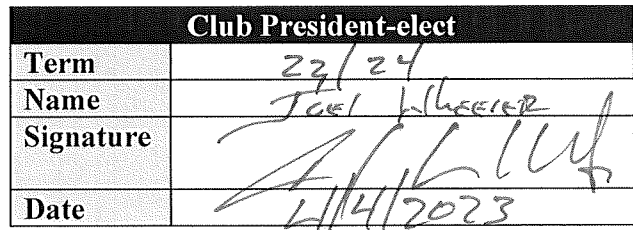 Club President-elect
Term 23/24
Name Joel Wheeler
Signature
Date 4/4/2023